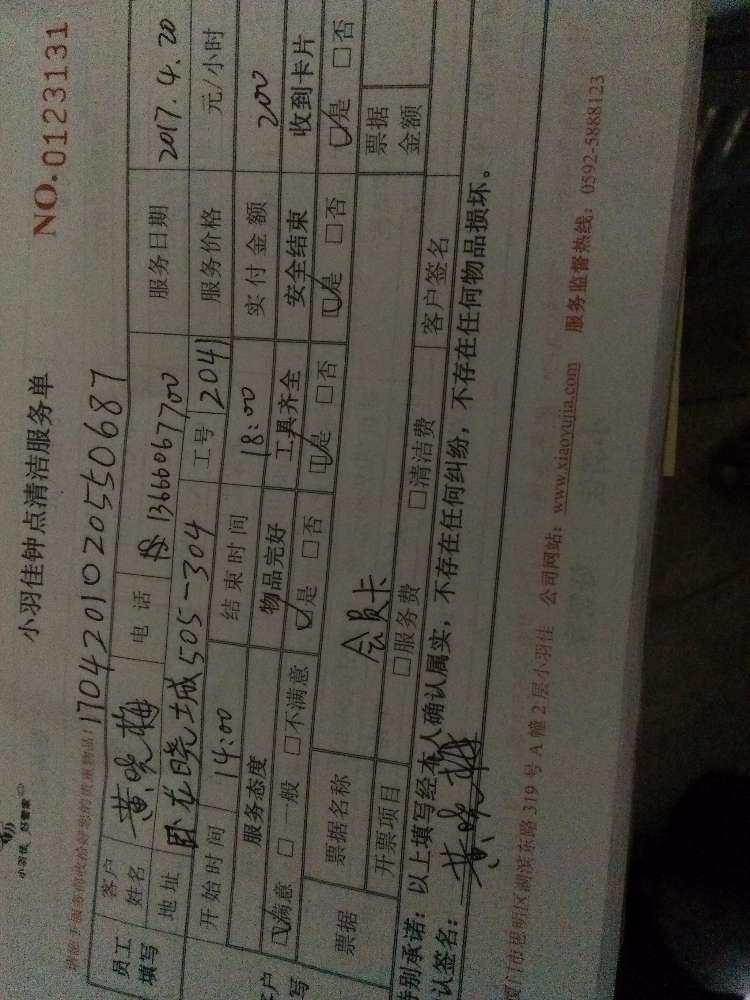 小羽佳 好管家
小羽佳钟点清洁服务单
NO.0123131
1704201020550687
员工填写 客户姓名 黄晓梅 电话 13666067700 服务日期 2017.4.20
地址 卧龙晓城505-304 工号 2041 服务价格 元/小时
开始时间 14:00 结束时间 18:00 实付金额 200
服务态度 物品完好 工具齐全 安全结束 收到卡片
☑满意 □一般 □不满意 ☑是 □否 ☑是 □否 ☑是 □否 ☑是 □否
票据 票据名称 会员卡 票据金额
开票项目 □服务费 □清洁费 客户签名
特别承诺：以上填写经本人确认属实，不存在任何纠纷，不存在任何物品损坏。
确认签名： 黄晓梅
厦门市思明区湖滨东路 319 号 A 幢 2 层小羽佳 公司网站：www.xiaoyujia.com 服务监督热线：0592-5888123